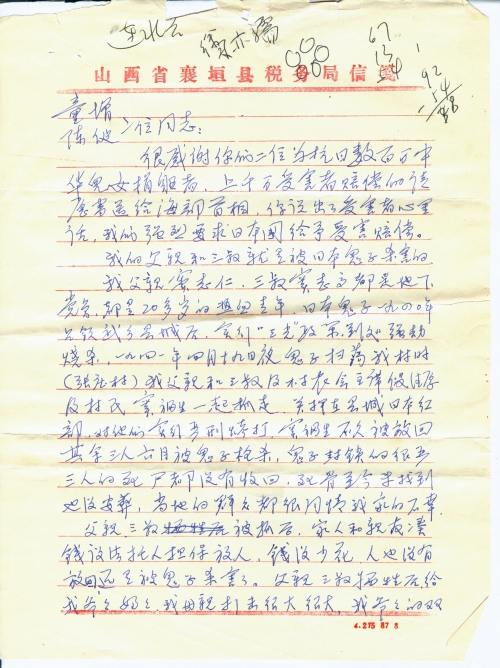 67
134
92
山西省襄垣县税务局信笺
童增
陈健 二位同志：
很感谢你们二位为抗日数百万中
华儿女捐躯者，上千万受害者赔偿的请
愿书送给海部首相，你说出了受害者心里
话，我们强烈要求日本国给予受害赔偿。
我的父亲和三叔就是被日本鬼子杀害的
我父亲 志仁，三叔 志 都是地下
党员，都是20多岁的热血青年，日本鬼子一九四〇年
占领 县城后，实行“三光”政策，到处强劫
烧杀，一九四一年四月十九日夜鬼子扫荡我村时
（ 村）我父亲和三叔及村农会主席
及村民 一起抓走，关押在县城日本红
部，对他们实行严刑烤打， 不久被放回
其余三人六月被鬼子枪杀，鬼子封锁的很严
三人的死尸都没有收回，死骨至今未找到
也没安葬，当地的群众都很同情我家的
父亲、三叔 被抓后，家人和亲友凑
钱设法托人担保放人，钱没少花，人也没有
放回还是被鬼子杀害了。父亲三叔牺牲后给
我爷爷奶奶，我母亲打击很大很大，我爷爷的双
4.275 87 8